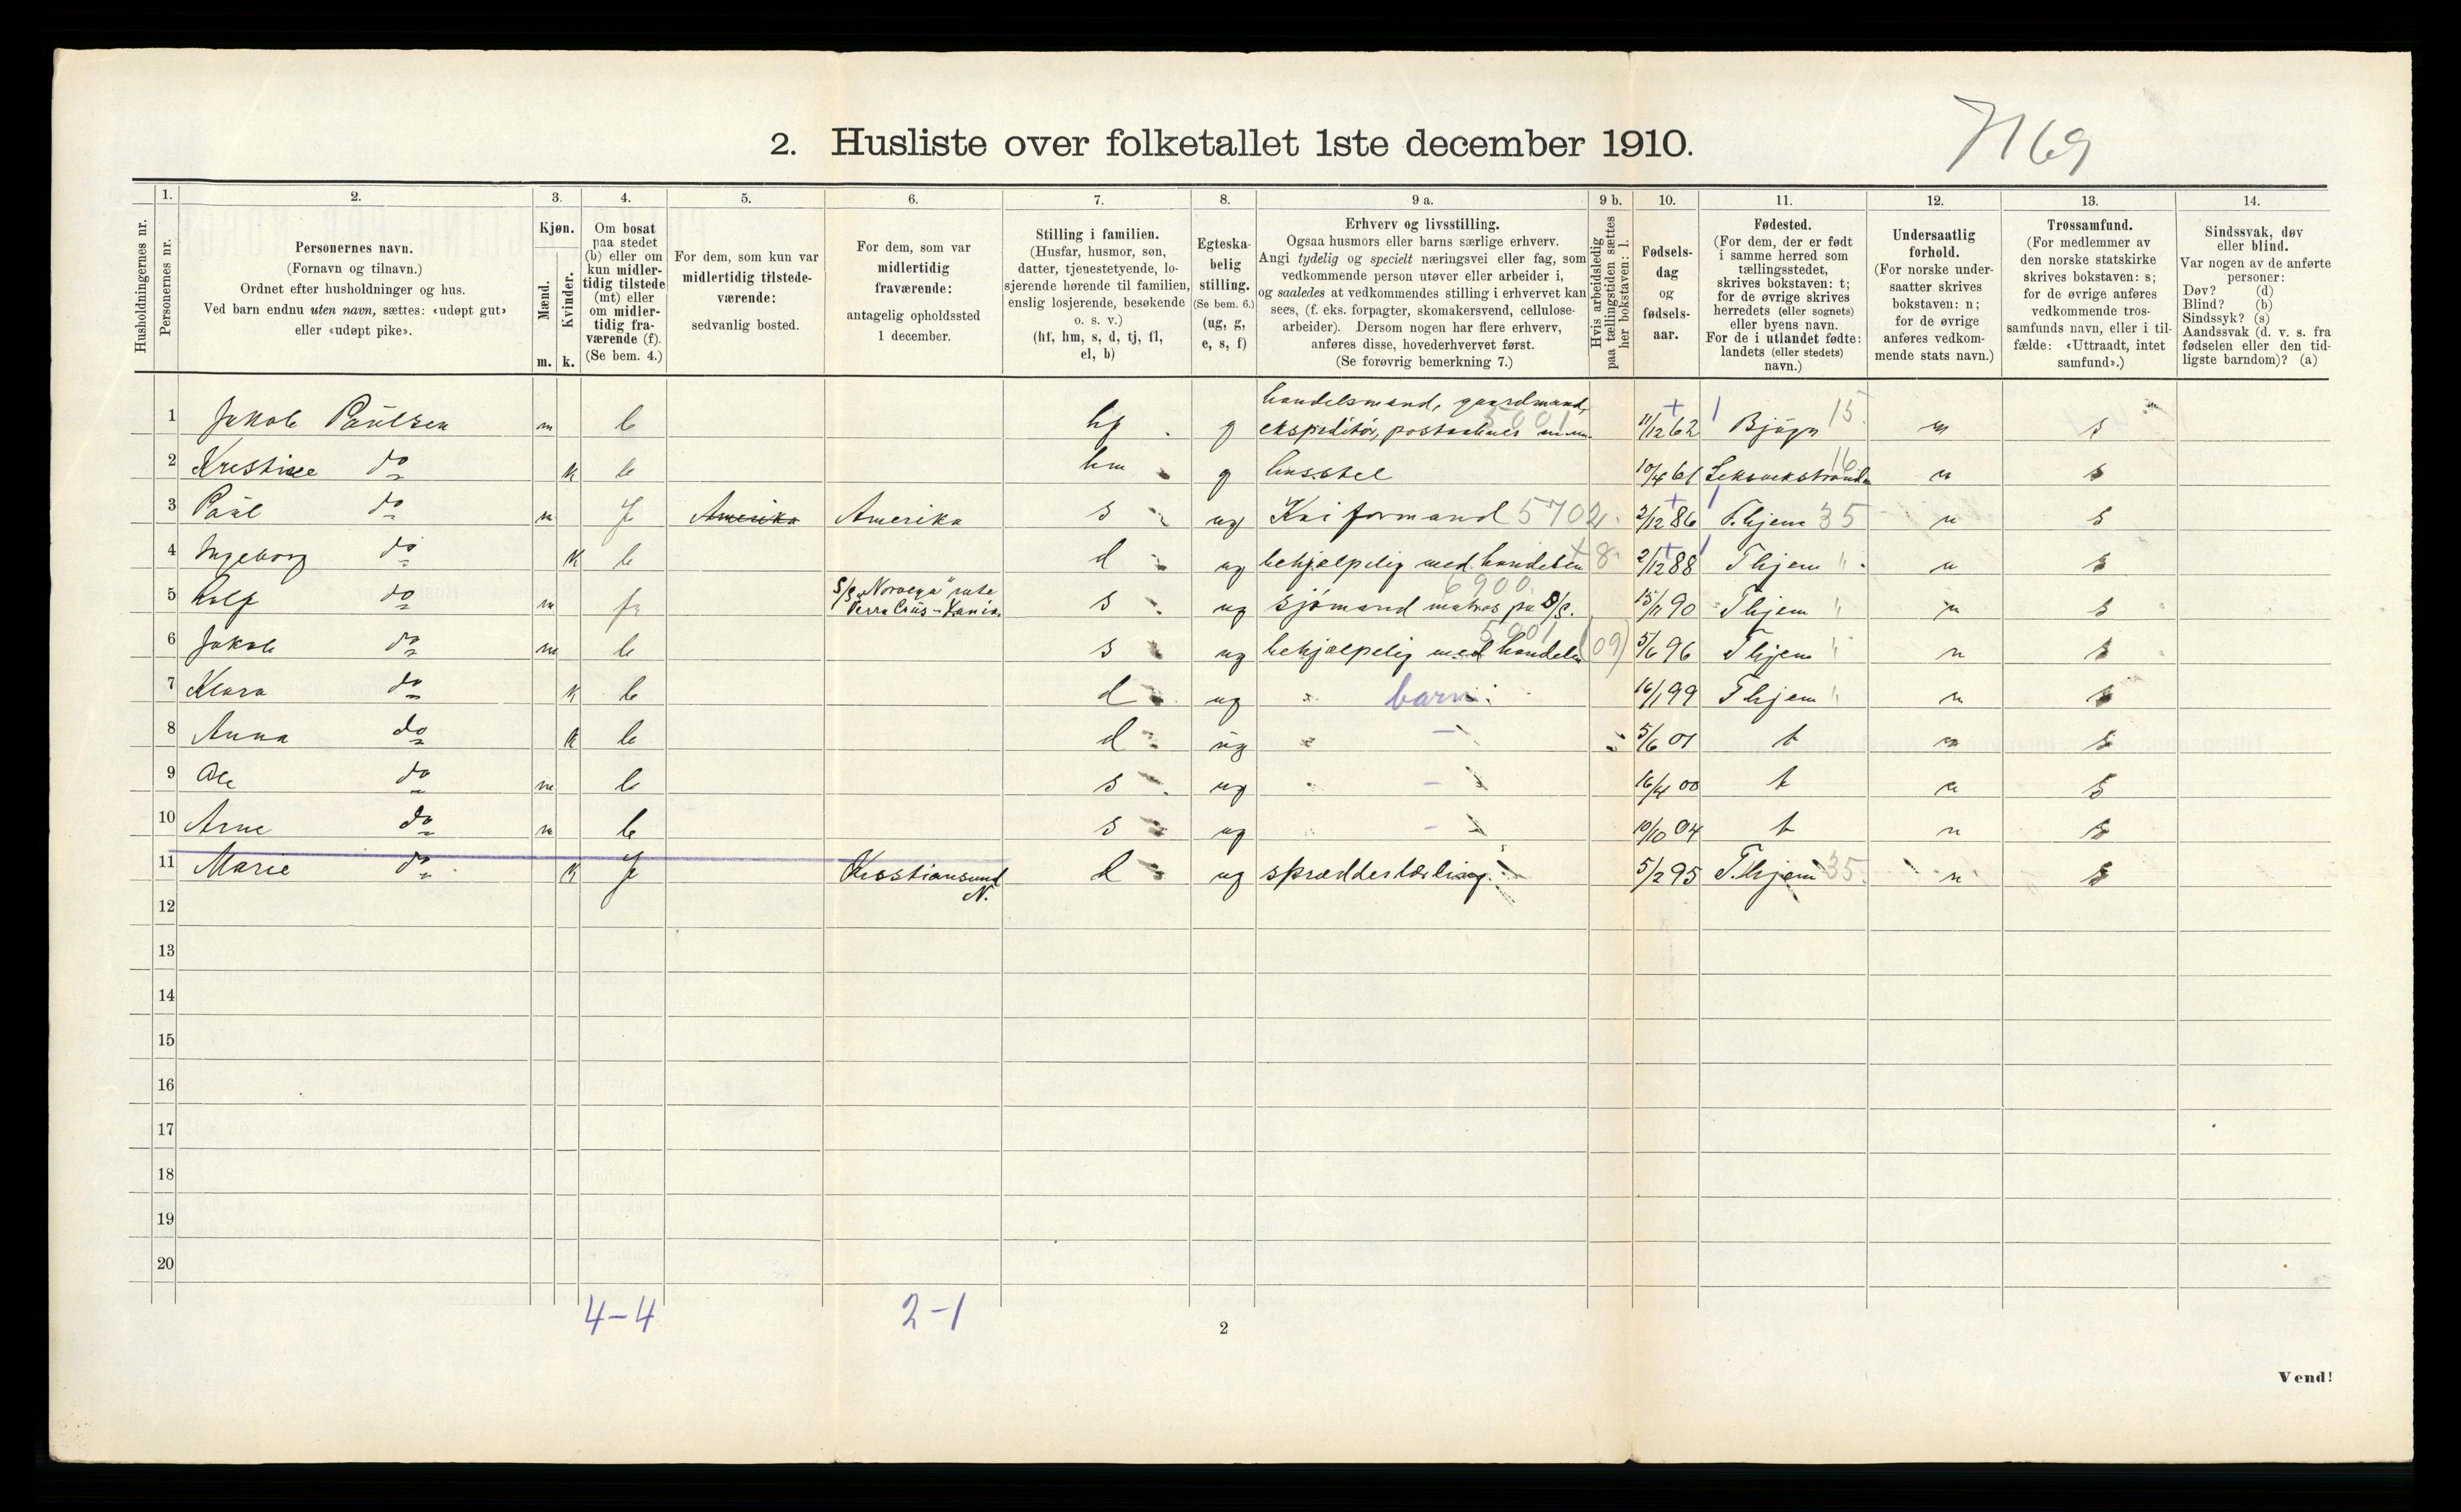 2. Husliste over folketallet 1ste december 1910.
Husholdningernes nr.
1.
Personernes nr.
2.
Personernes navn.
(Fornavn og tilnavn.)
Ordnet efter husholdninger og hus.
Ved barn endnu uten navn, sættes: «udøpt gut»
eller «udøpt pike».
3.
Kjøn.
Mænd.
Kvinder.
m. k.
4.
Om bosat
paa stedet
(b) eller om
kun midler-
tidig tilstede
(mt) eller
om midler-
tidig fra-
værende (f).
(Se bem. 4.)
5.
For dem, som kun var
midlertidig tilstede-
værende:
sedvanlig bosted.
6.
For dem, som var
midlertidig
fraværende:
antagelig opholdssted
1 december.
7.
Stilling i familien.
(Husfar, husmor, søn,
datter, tjenestetyende, lo-
sjerende hørende til familien,
enslig losjerende, besøkende
o. s. v.)
(hf, hm, s, d, tj, fl,
el, b)
8.
Egteska-
belig
stilling.
(Se bem. 6.)
(ug, g,
e, s, f)
9 a.
Erhverv og livsstilling.
Ogsaa husmors eller barns særlige erhverv.
Angi tydelig og specielt næringsvei eller fag, som
vedkommende person utøver eller arbeider i,
og saaledes at vedkommendes stilling i erhvervet kan
sees, (f. eks. forpagter, skomakersvend, cellulose-
arbeider). Dersom nogen har flere erhverv,
anføres disse, hovederhvervet først.
(Se forøvrig bemerkning 7.)
9 b.
Hvis arbeidsledig
paa tællingstiden sættes
her bokstaven: l.
10.
Fødsels-
dag
og
fødsels-
aar.
11.
Fødested.
(For dem, der er født
i samme herred som
tællingsstedet,
skrives bokstaven: t;
for de øvrige skrives
herredets (eller sognets)
eller byens navn.
For de i utlandet fødte:
landets (eller stedets)
navn.)
12.
Undersaatlig
forhold.
(For norske under-
saatter skrives
bokstaven: n;
for de øvrige
anføres vedkom-
mende stats navn.)
13.
Trossamfund.
(For medlemmer av
den norske statskirke
skrives bokstaven: s;
for de øvrige anføres
vedkommende tros-
samfunds navn, eller i til-
fælde: «Uttraadt, intet
samfund».)
14.
Sindssvak, døv
eller blind.
Var nogen av de anførte
personer:
Døv? (d)
Blind? (b)
Sindssyk? (s)
Aandssvak (d. v. s. fra
fødselen eller den tid-
ligste barndom)? (a)
handelsmand, gaardmand,
1 Jakob Paulsen m b hf g ekspeditør, 5001 11/12 62 Bjugn 15 n s
2 Kristine do k b hm g husstel 10/4 61 16 n s
3 Paul do m f Amerika Amerika s ug Kaiformand 5702 2/12 86 T.hjem 35 n s
4 Ingeborg do k b d ug behjælpelig med handelen 8 2/12 88 T.hjem " n s
5 Rolf do m f S/S "Norvega" rute s ug sjömand matros paa S/S. 6900 15/11 90 T.hjem " n s
6 Jakob do m b s ug behjælpelig med handelen 5001 (09) 5/6 96 T.hjem " n s
7 Klara do k b d ug barn 16/1 99 T.hjem " n s
8 Anna do k b d ug - 5/6 01 t n s
9 Ole do m b s ug - 16/4 00 t n s
10 Arne do m b s ug - 10/10 04 t n s
11 Marie do k f Kristiansund N. d ug 5/2 95 T.hjem 35 n s
12
13
14
15
16
17
18
19
20
4-4 2-1
2
Vend!